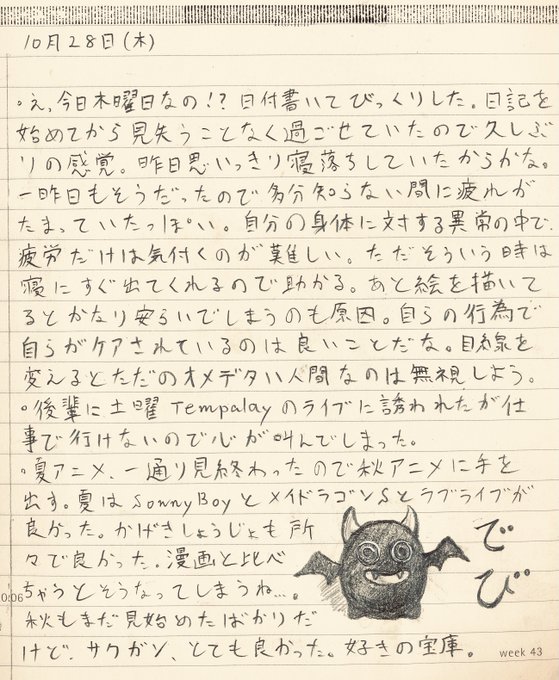 10月28日(木)
・え、今日木曜日なの!?日付書いてびっくりした。日記を
始めてから見失うことなく過ごせていたので久しぶ
りの感覚。昨日思いっきり寝落ちしていたからかな。
一昨日もそうだったので多分知らない間に疲れが
たまっていたっぽい。自分の身体に対する異常の中で、
疲労だけは気付くのが難しい。ただそういう時は
寝にすぐ出てくれるので助かる。あと絵を描いて
るとかなり安らいでしまうのも原因。自らの行為で
自らがケアされているのは良いことだな。目線を
変えるとただのオメデタい人間なのは無視しよう。
・後輩に土曜Tempalayのライブに誘われたが仕
事で行けないので心が叫んでしまった。
・夏アニメ、一通り見終わったので秋アニメに手を
出す。夏はSonnyBoyとメイドラゴンSとラブライブが
良かった。かげきしょうじょも所
々で良かった。漫画と比べ
ちゃうとそうなってしまうね…。
秋もまだ見始めたばかりだ
けど、サクガン、とても良かった。好きの宝庫。
でび
0:06
week 43